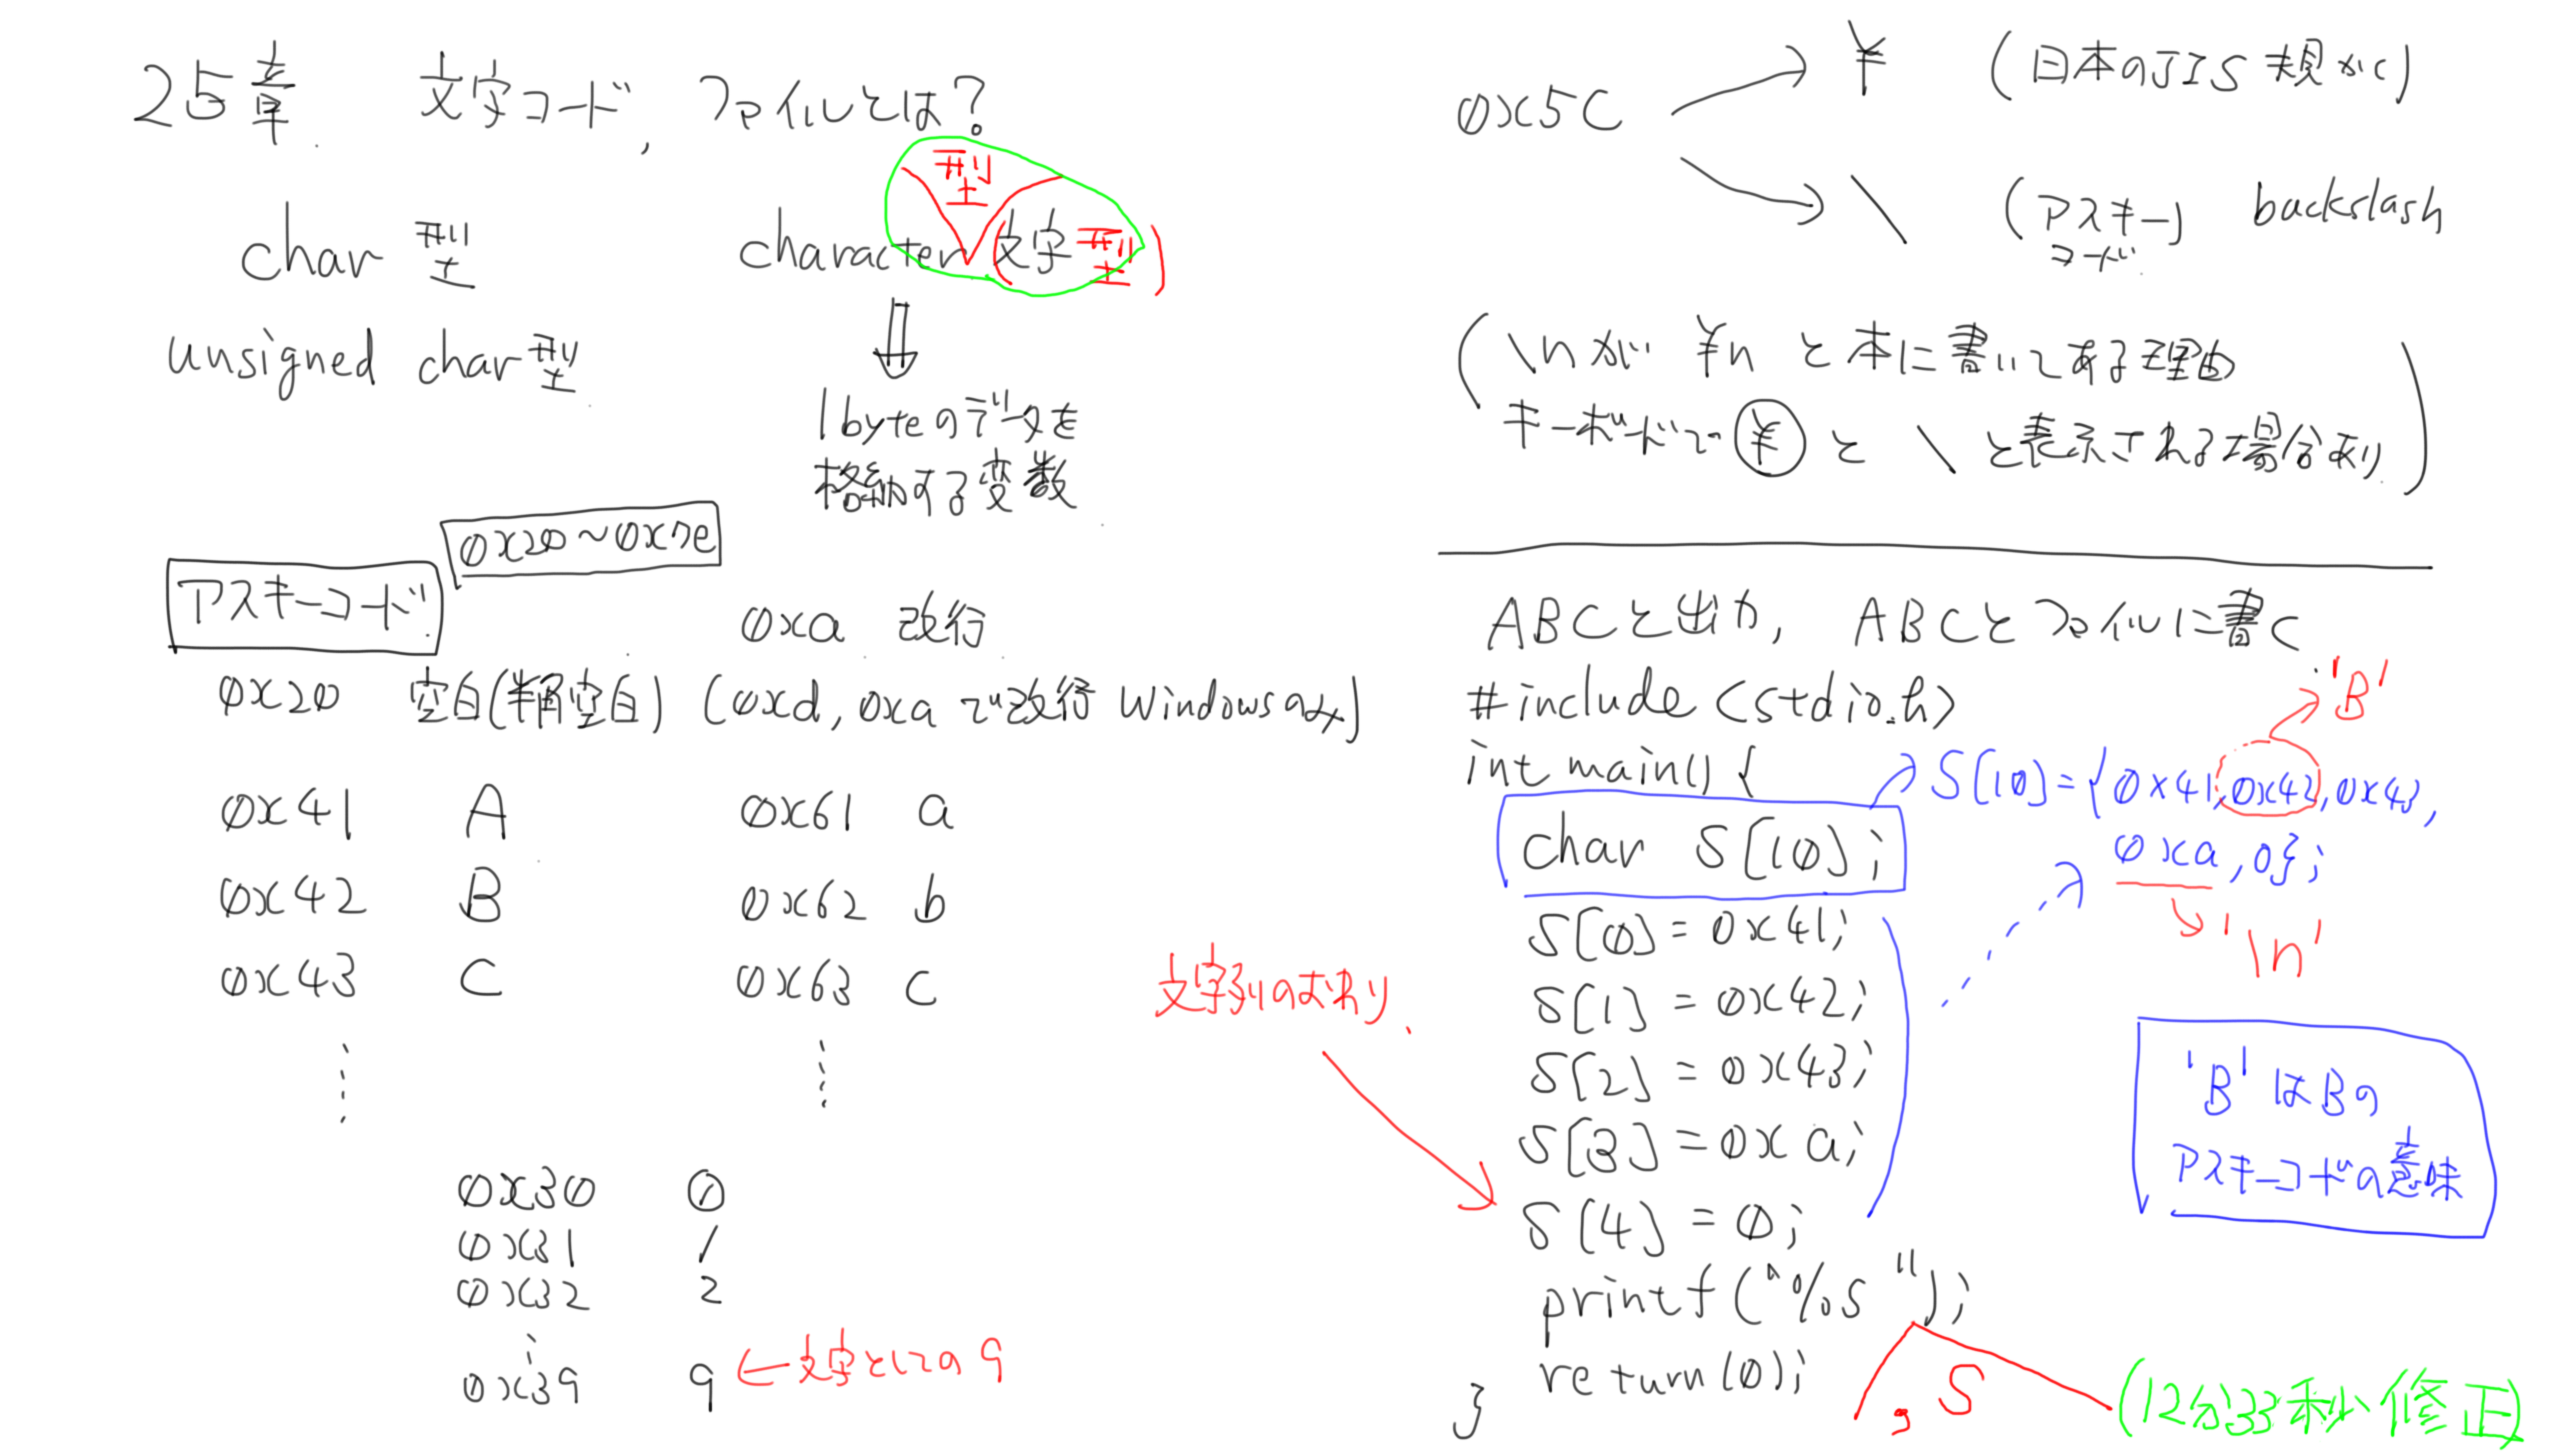 25章. 文字コード, ファイルとは?
char 型
unsigned char型
型
character (文字型)
⇓
1byteのデータを
格納する変数
アスキーコード
0x20~0x7e
0xa 改行
0x20 空白(半角空白) (0xd, 0xaで改行 Windowsのみ)
0x41 A 0x61 a
0x42 B 0x62 b
0x43 C 0x63 c
⋮ ⋮
0x30 0
0x31 1
0x32 2
⋮
0x39 9 ← 文字としての9
0x5C → ¥ (日本のJIS規かく)
→ \ (アスキーコード) backslash
(\nが ¥n と本に書いてある理由
キーボードで ¥ と \ と表示される場合あり)
ABCと出力, ABCとファイルに書く.
#include <stdio.h>
int main() {
char S[10];
→ S[10]={0x41,0x42,0x43,
0xa,0};
→ 'B'
→ '\n'
S[0]=0x41;
S[1]=0x42;
S[2]=0x43;
S[3]=0xa;
文字列のおわり.
→ S[4]=0;
printf("%s");
, S
(12分33秒修正)
return(0);
}
'B'はBの
アスキーコードの意味